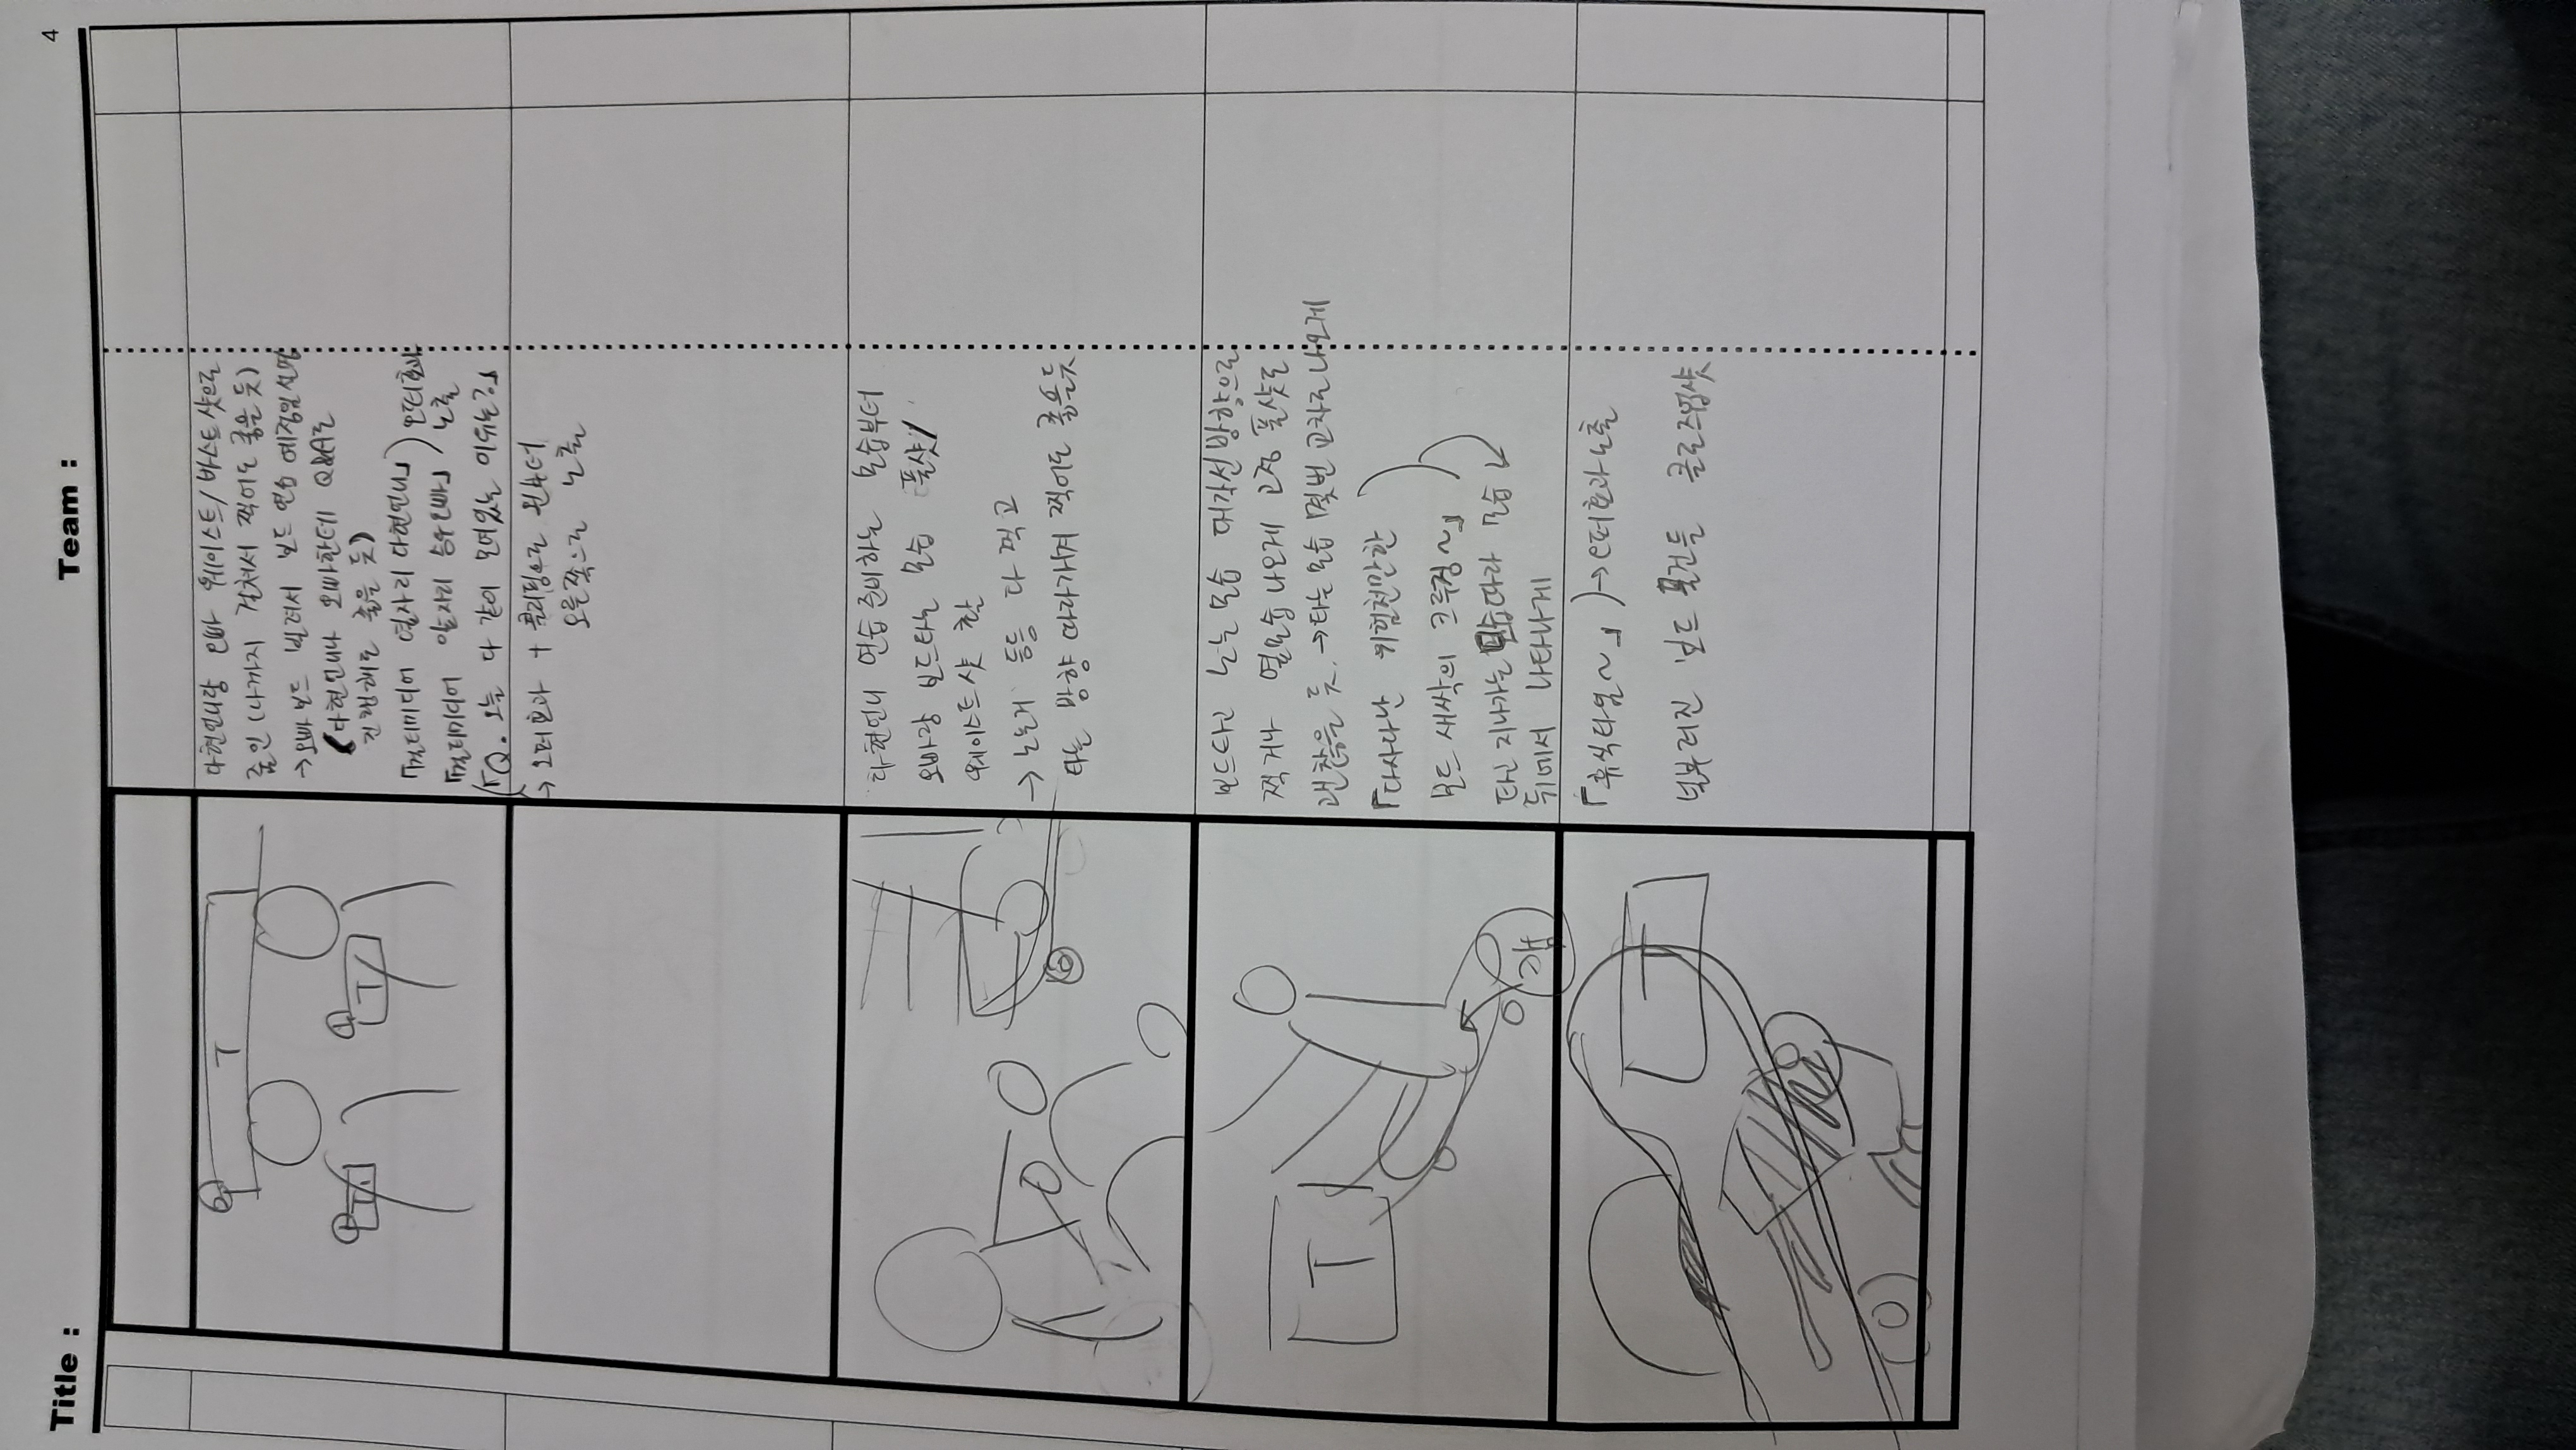 4
Title :
Team :
② T
① T ① T
다현언니랑 오빠 웨이스트/바스트 샷으로
줌인 (나까지 걸쳐서 찍어도 좋을 듯)
→ 오빠 보드 빌려서 보드 연습 예정임 설명
(다현언니나 오빠한테 Q&A로
진행해도 좋을 듯)
「멀티미디어 옆자리 다현언니」
「멀티미디어 앞자리 승우오빠」
) 오퍼효과
노출
(「Q. 오늘 다 같이 모여있는 이유는?」
→ 오퍼효과 + 클리핑으로 왼부터
오른쪽으로 노출
다현언니 연습 준비하는 모습부터
오빠랑 보드타는 모습 풀샷/
웨이스트 샷 촬
→ 노는거 등등 다 찍고
타는 방향 따라가게 찍어도 좋을듯
T
캠
보드타고 노는 모습 대각선 방향으로
찍거나 옆모습 나오게 고정 풀샷도
괜찮을 듯. → 타는 모습 몇번 교차로 나오게
「다사다난 위험천만한
보드 새싹의 크루징~」
타고 지나가는 모습따라 모습
뒤에서 나타나게
T
「휴식타임~」) → 오퍼효과 노출
널부러진 보드 물건들 클로즈업샷